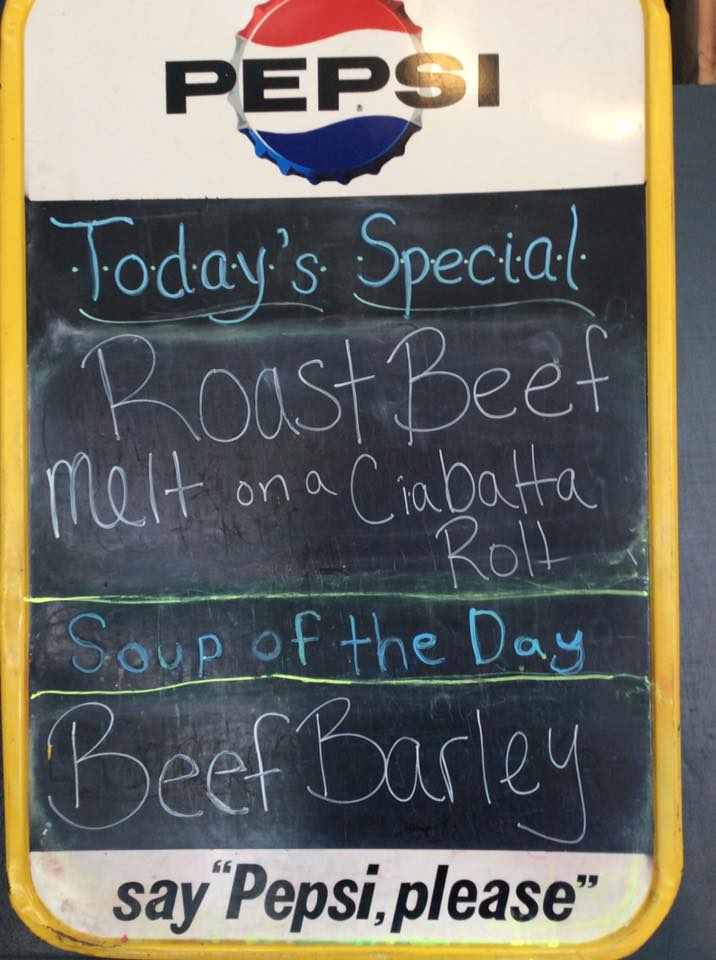 PEPSI
Today's Special
Roast Beef
Melt on a Ciabatta
Roll
Soup of the Day
Beef Barley
say "Pepsi, please"